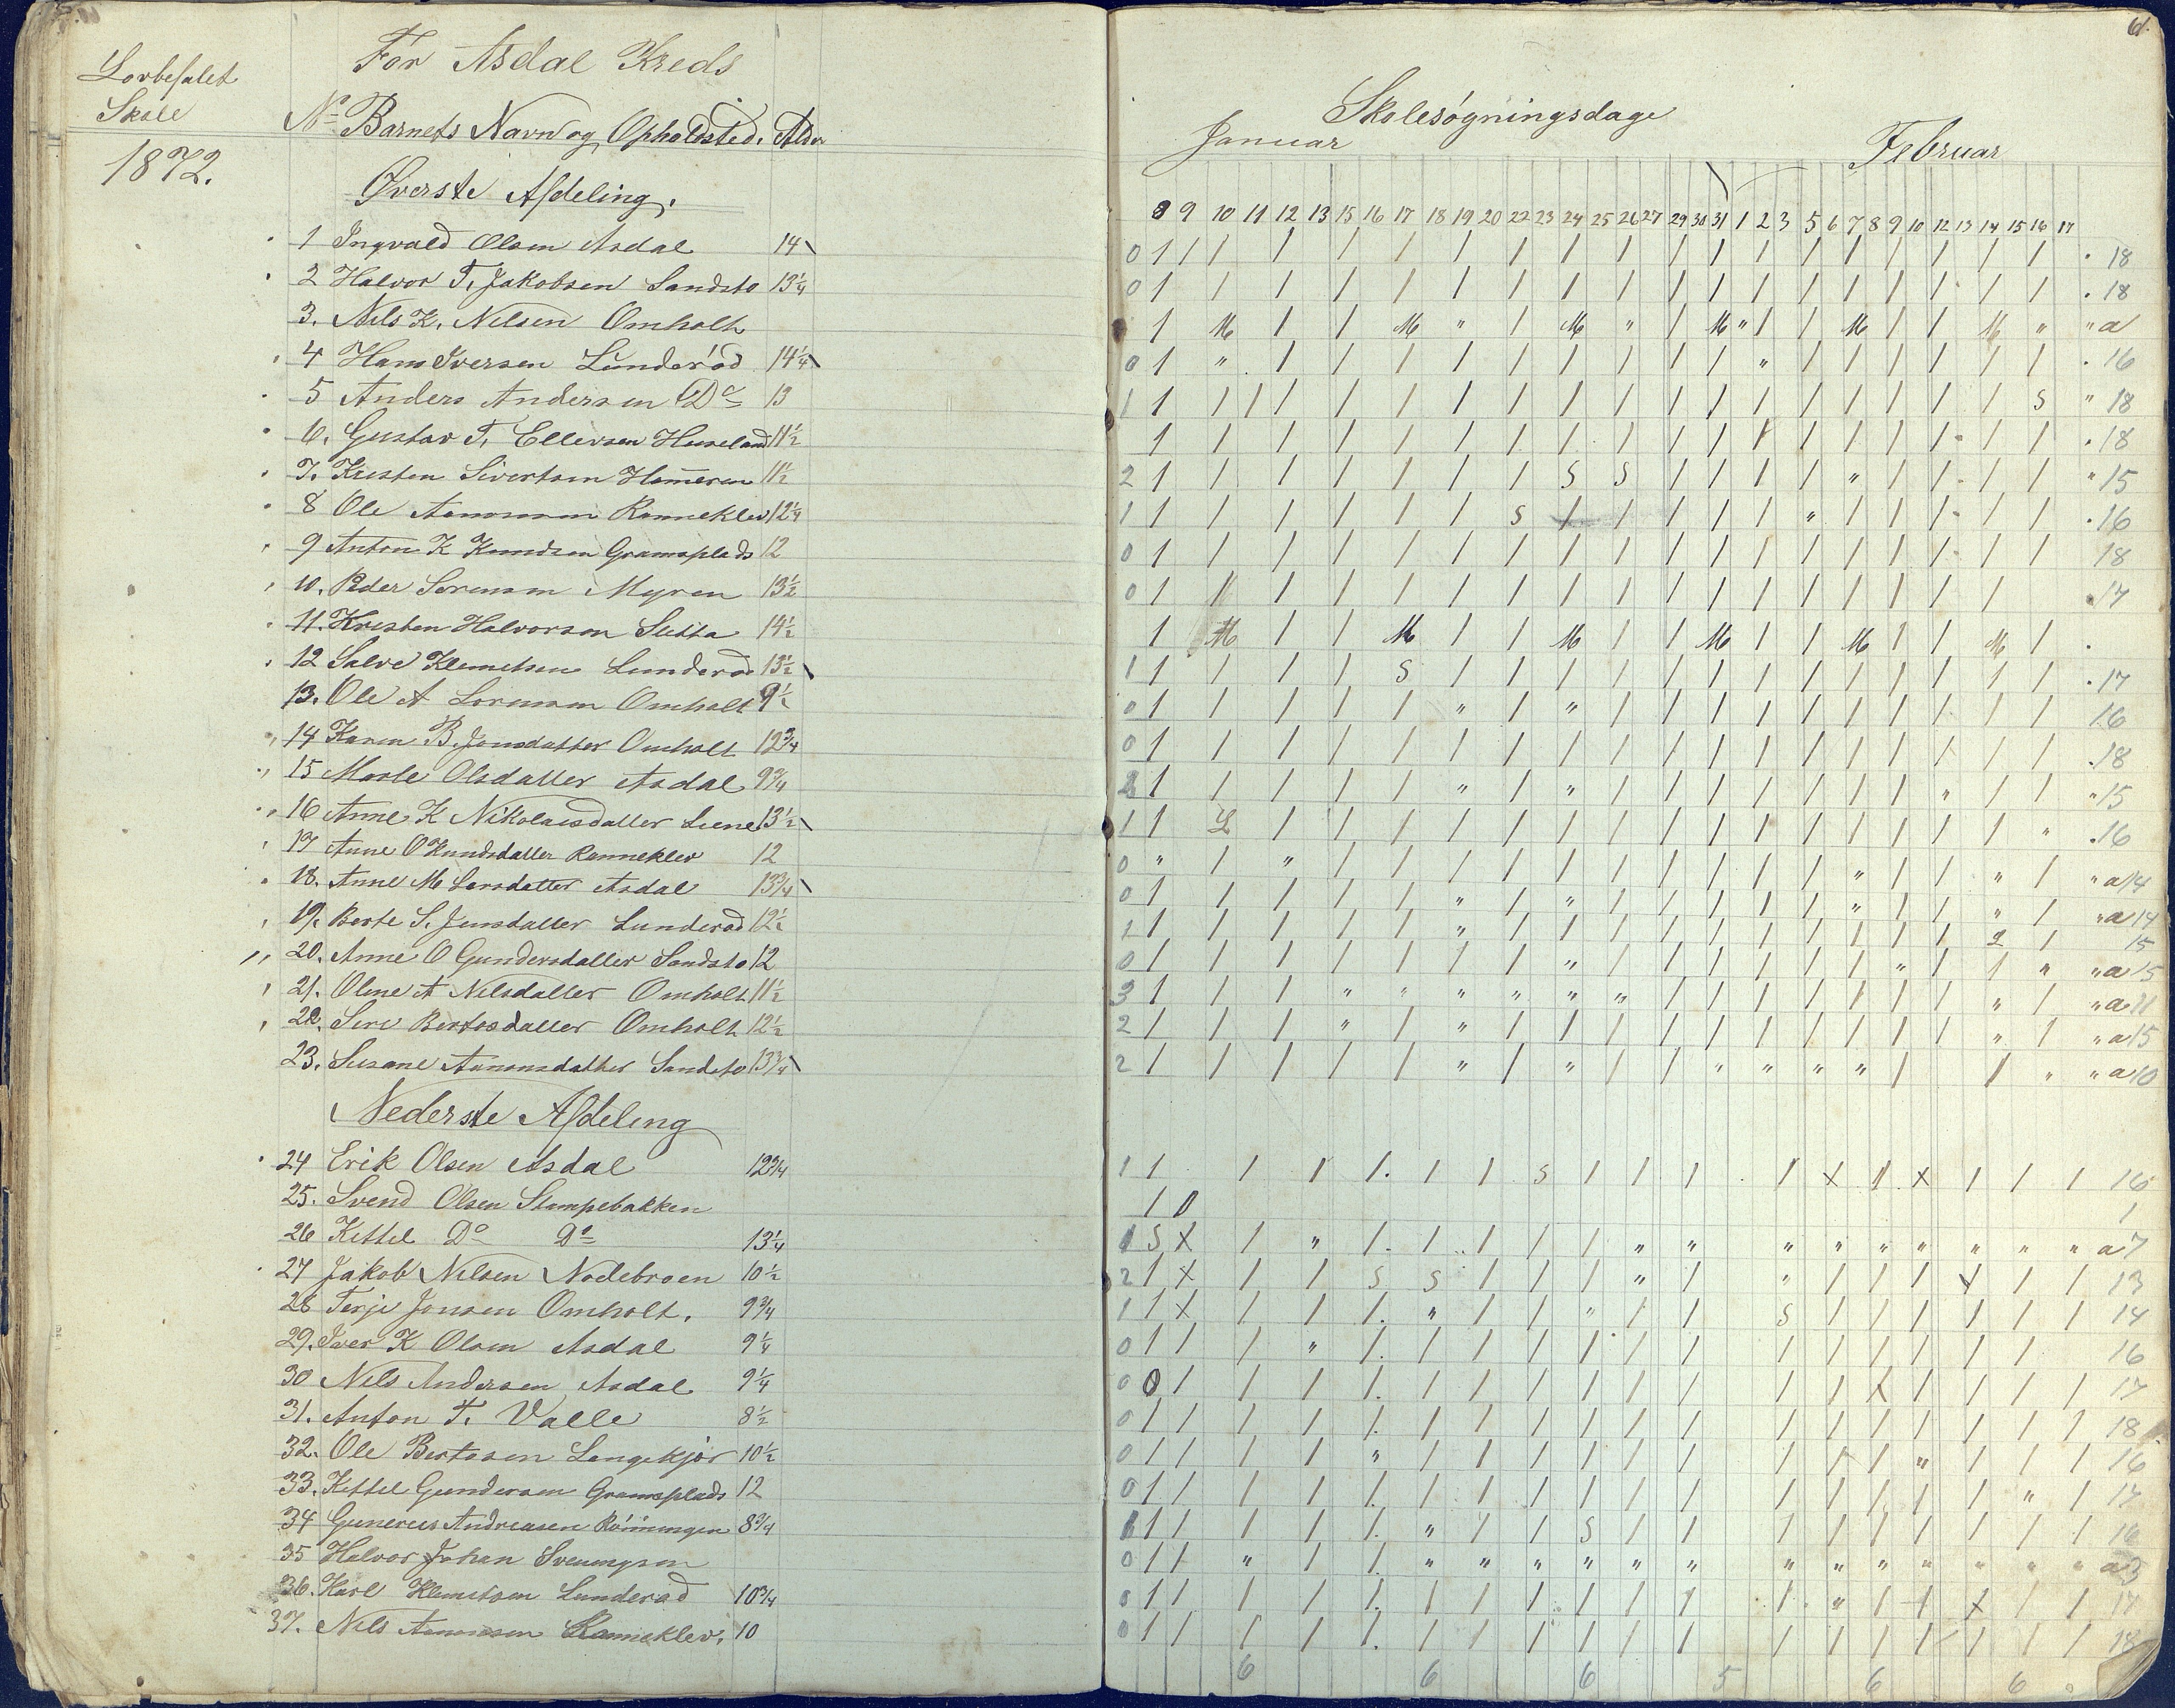 Skole
1872.
For Asdal Kreds
No Barnets Navn og Opholdsted. Alder
Øverste Afdeling.
1 Ingvald Olsen Asdal 14
2 Halvor T. Jakobsen Sandsto 13 1/4
3. Nils K. Nilsen Omholt
4 Hans Iversen Lunderód 14 1/4
5 Anders Andersen Do 13
6. Gustav T. Ellevsen Huseland 11 1/2
7. Kristen Sivertsen 11 1/2
8 Ole Aanonsen Ranneklev 12 1/4
9 Anton K Knudsen Gramsplads 12
10. Peder Sorensen Myren 13 1/2
11. Kristen Halvorsen 14 1/2
12 Salve Klemetsen Lunderod 13 1/2
13. Ole A Sorensen Omholt 9 1/2
14 Karen B. Jonsdatter Omholt 12 3/4
15 Olsdatter Asdal 9 3/4
16 Anne K Nikolaisdatter Liene 13 1/2
17 Anne O Knudsdatter Ranneklev 12
18. Anne M Larsdatter Asdal 13 3/4
19. Berte S. Jensdatter Lunderod 12 1/2
20. Anne O Gundersdatter Sandsto 12
21. Oline A Nilsdatter Omholt 11 1/2
22. Siri Bertosdatter Omholt 12 1/2
23. Susane Aanonsdatter Sandsto 13 3/4
Nederste Afdeling
24 Erik Olsen Asdal 12 3/4
25. Svend Olsen Stompebakken
26 Kittel Do Do 13 1/4
27 Jakob Nilsen Nodebroen 10 1/2
28 Terje Jonsen Omholt. 9 3/4
29. Iver K Olsen Asdal 9 1/4
30 Nils Andersen Asdal 9 1/4
31. Anton T. Valle 8 1/2
32. Ole Bertosen Langekjór 10 1/2
33. Kittel Gundersen Gramsplads 12
34 Gunerius Andreasen Rónningen 8 3/4
35 Halvor Johan
36. Karl Klemetsen Lunderod 10 3/4
37. Nils Aanonsen Ranneklev. 10
61.
Skolesógningsdage
Januar Februar
8 9 10 11 12 13 15 16 17 18 19 20 22 23 24 25 26 27 29 30 31 1 2 3 5 6 7 8 9 10 12 13 14 15 16 17
0 1 / / / / / / / / / / / / / / / / / / . 18
0 1 / / / / / / / / / / / / / / / / / . 18
1 M / / M " / M " / M " / / M / / M " " a
0 1 " / / / / / / / / / " / / / / / / . 16
1 1 / / / / / / / / / / / / / / / / / S " 18
1 / / / / / / / / / / / / / / / / / . 18
2 1 / / / / / / S S / / / / " / / / / " 15
1 1 / / / / / S / / / / / " / / / / / . 16
0 1 / / / / / / / / / / / / / / / / / 18
0 1 / / / / / / / / / / / / / / / / . 17
1 M / / M / / M / / M / / M / / M / .
1 1 / / / S / / / / / / / / / / / / / . 17
0 1 / / / / " / " / / / / / / / / / / 16
0 1 / / / / / / / / / / / / / / / / / . 18
2 1 / / / / " / " / / / / / / / " / / " 15
1 1 L / / / / / / / / / / / / / / / " . 16
0 " / " / / / / / / / / / / " / / " / " a 14
0 1 / / / / " / " / / / / / " / / " / " a 14
1 1 / / / / " / / / / / / / / / / 2 / 15
0 1 / / / / / / " / / / / / / " / / " " a 15
3 1 / / " " " " " " / / / / / / / " / " a 11
2 1 / / " / " / / / / / / / / / / " / " a 15
2 1 / / / / " / " / / " " " " / / " " a 10
1 1 / / / . / / S / / / / X / X / / / 16
1 0 1
1 S X / " / . / / / / " " " " " " " " " a 7
2 1 X / / S S / / / " / " / / / X / / 13
1 1 X / / / . " / / " / / S / / / / / / 14
0 1 / / " / . / / / / / / / / / / / / 16
0 0 / / / / . / / / / / / / / X / / / / 17
0 1 / / / / . / / / / / / / / / / / / / 18
0 1 / / / " / / / / / / / / / " / / / 16
0 1 / / / / . / / / / / / / / / / / " / 17
1 1 / / / / . " / / S / / / / / / / / / 16
0 1 / " / / . " " " " " " " " " " " " " a 3
0 1 / / / / . / / / / / / / " / / X / / 17
0 1 / / / / . / / / / / / / / / / / / / 18
6 6 6 5 6 6